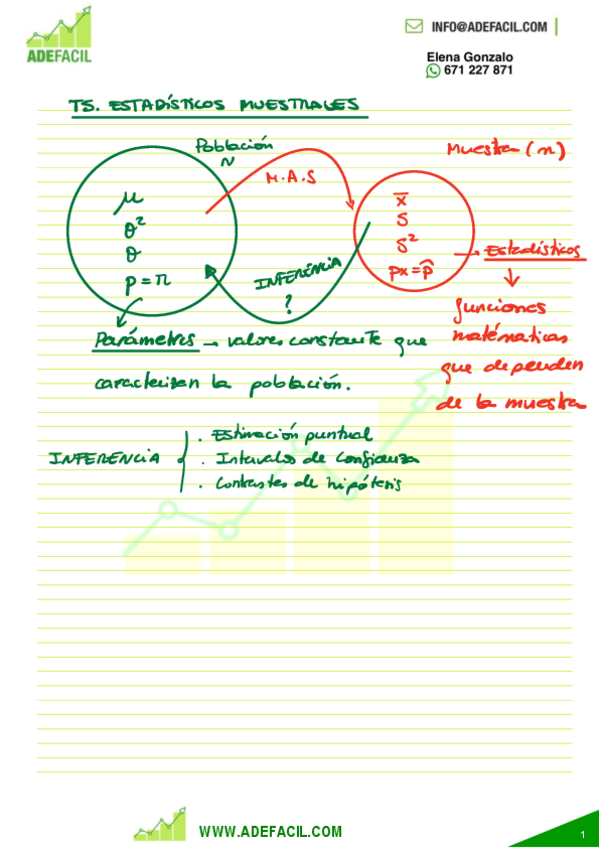 ADEFACIL
INFO@ADEFACIL.COM
Elena Gonzalo
671 227 871
T5. ESTADÍSTICOS MUESTRALES
Población
N
Muestra (n)
M.A.S
μ
σ²
σ
p = π
x̄
S
S²
px = p̂
INFERENCIA
?
→ Estadísticos
funciones
matématicas
que dependen
de la muestra
Parámetros → valores constante que
caracterizan la población.
INFERENCIA
. Estimación puntual
. Intervalos de Confianza
. Contrastes de hipótesis
WWW.ADEFACIL.COM
1